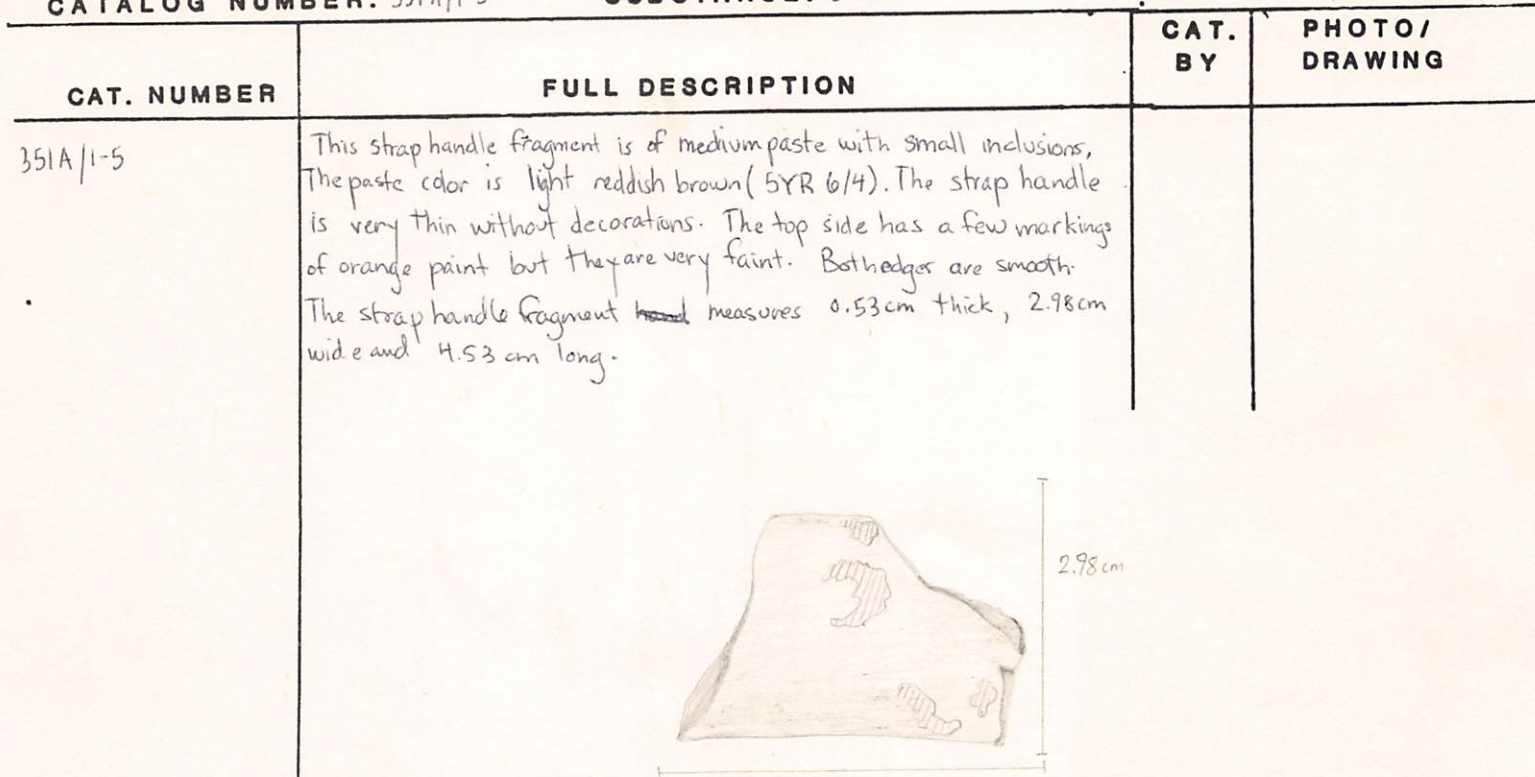 CATALOG NUMBER: 351A/1-5
CAT. NUMBER
FULL DESCRIPTION
CAT. BY
PHOTO/ DRAWING
351A/1-5
This strap handle fragment is of medium paste with small inclusions,
The paste color is light reddish brown (5YR 6/4). The strap handle
is very thin without decorations. The top side has a few markings
of orange paint but they are very faint. Both edges are smooth.
The strap handle fragment measures 0.53cm thick, 2.98cm
wide and 4.53 cm long.
2.98cm